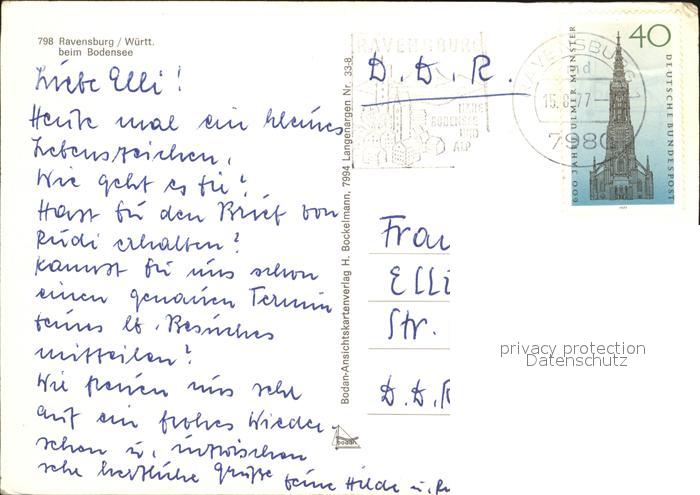 798 Ravensburg / Württ.
beim Bodensee
Liebe Elli!
Heute mal ein kleines
Lebenszeichen.
Wie geht es Dir?
Hast Du den Brief von
Rudi erhalten?
Kannst Du uns schon
einen genauen Termin
Deines lb. Besuches
mitteilen?
Wir freuen uns sehr
auf ein frohes Wieder-
sehen u. inzwischen
sehr herzliche Grüße Deine Hilde u.
Bodan-Ansichtskartenverlag H. Bockelmann, 7994 Langenargen Nr. 33-8
bodan
RAVENSBURG
BODENSEE
UND
ALP
D.D.R.
RAVENSBURG 1
7980
40
600 JAHRE ULMER MÜNSTER
DEUTSCHE BUNDESPOST
1977
Frau
Elli
Str.
D.D.R
privacy protection
Datenschutz